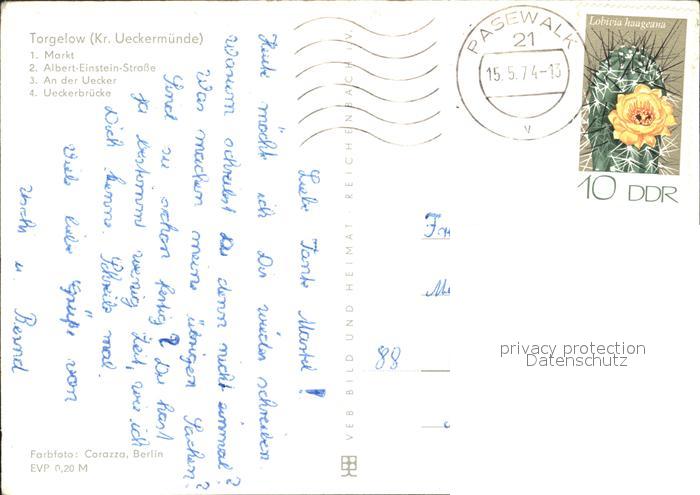 Torgelow (Kr. Ueckermünde)
1. Markt
2. Albert-Einstein-Straße
3. An der Uecker
4. Ueckerbrücke
Liebe Tante Martel!
Heute möchte ich Dir wieder schreiben.
Warum schreibst Du denn nicht einmal?
Was machen meine übrigen Sachen?
Sind sie schon fertig? Du hast
ja bestimmt wenig Zeit, wie ich
Dich kenne. Schreibe mal.
Viele liebe Grüße von
Uschi u. Bernd
Farbfoto: Corazza, Berlin
EVP 0,20 M
VEB BILD UND HEIMAT · REICHENBACH i. V.
PASEWALK
21
15.5.74-13
v
Lobivia haageana
10 DDR
88
privacy protection
Datenschutz